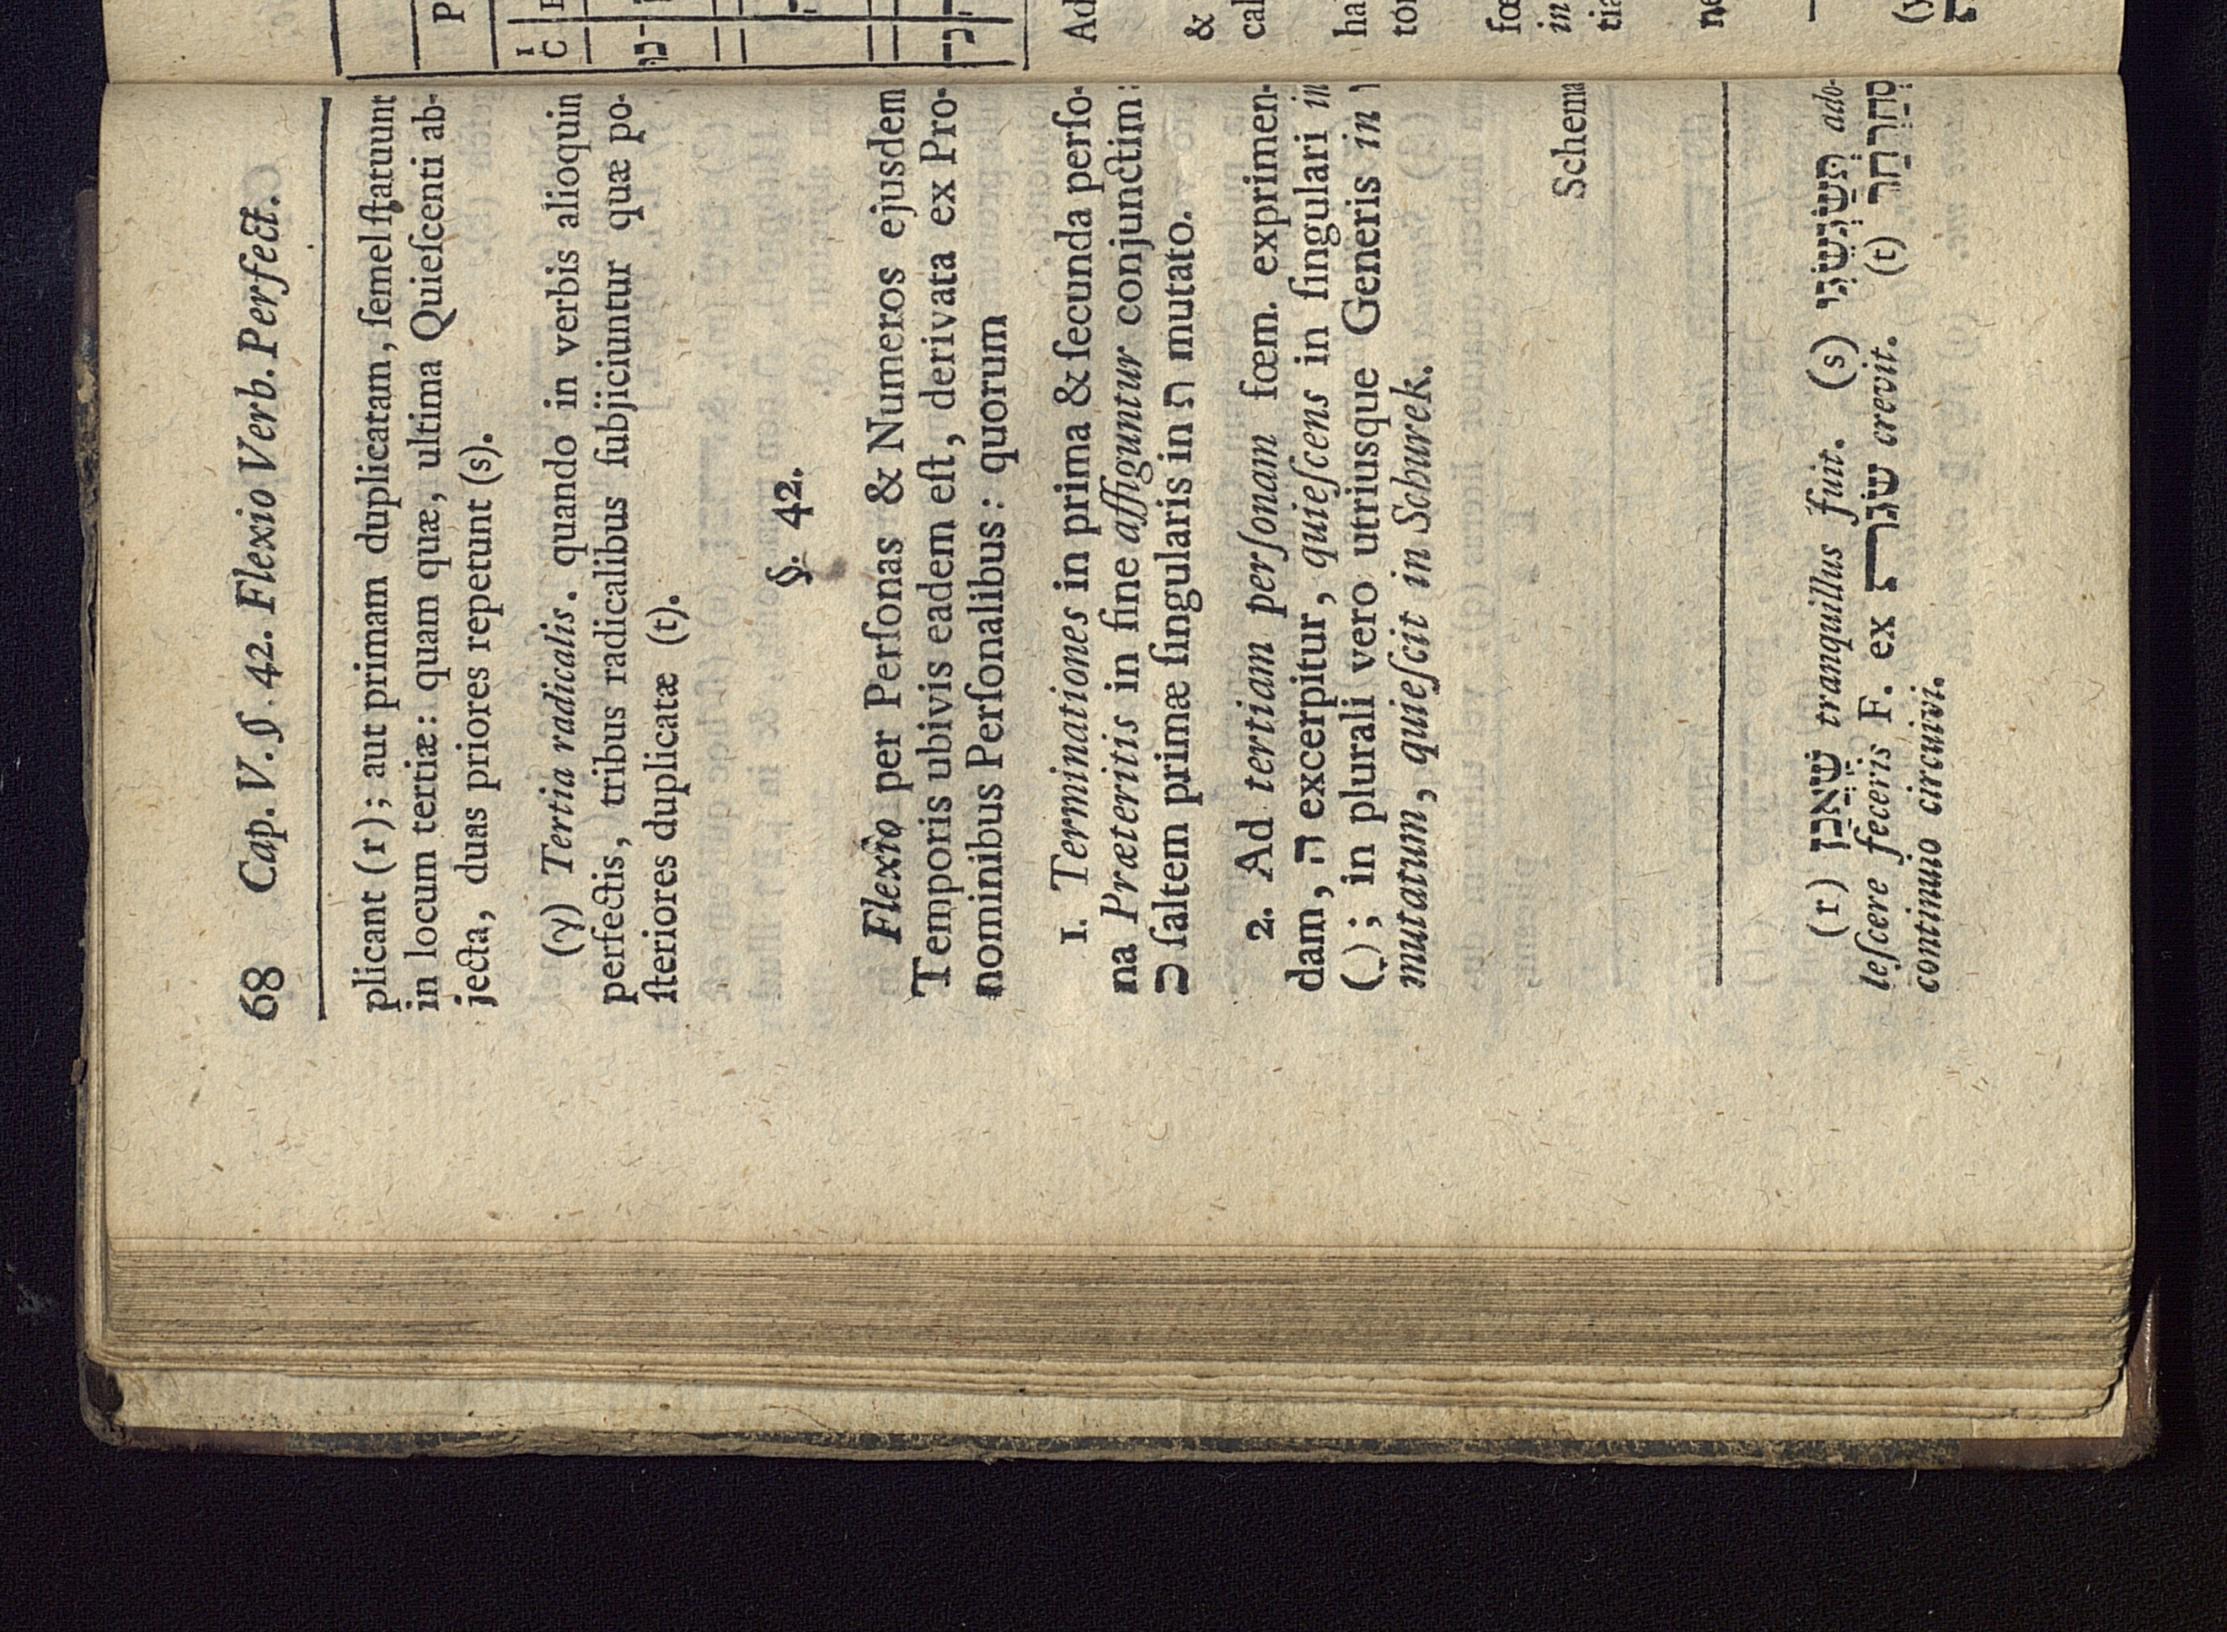 68 Cap. V. §. 42. Flexio Verb. Perfect.
plicant (r); aut primam duplicatam, ſemel ſtatuunt
in locum tertiæ: quam quæ, ultima Quieſcenti ab-
jecta, duas priores repetunt (s).
(γ) Tertia radicalis. quando in verbis alioquin
perfectis, tribus radicalibus ſubjiciuntur quæ po-
ſteriores duplicatæ (t).
§. 42.
Flexio per Perſonas & Numeros ejusdem
Temporis ubivis eadem eſt, derivata ex Pro-
nominibus Perſonalibus: quorum
1. Terminationes in prima & ſecunda perſo-
na Præteritis in fine affiguntur conjunctim:
כ ſaltem primæ ſingularis in ת mutato.
2. Ad tertiam perſonam fœm. exprimen-
dam, ה excerpitur, quieſcens in ſingulari in
(ָ); in plurali vero utriusque Generis in ו
mutatum, quieſcit in Schurek.
Schema
(r) שַׁאֲנַן tranquillus fuit. (s) תְּשַׂגְשֵׂגִי ado-
leſcere feceris F. ex שׂגה crevit. (t) סְחַרְחַר
continuio circuivi.